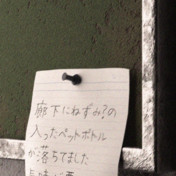 廊下にねずみ?の
入ったペットボトル
が落ちてました